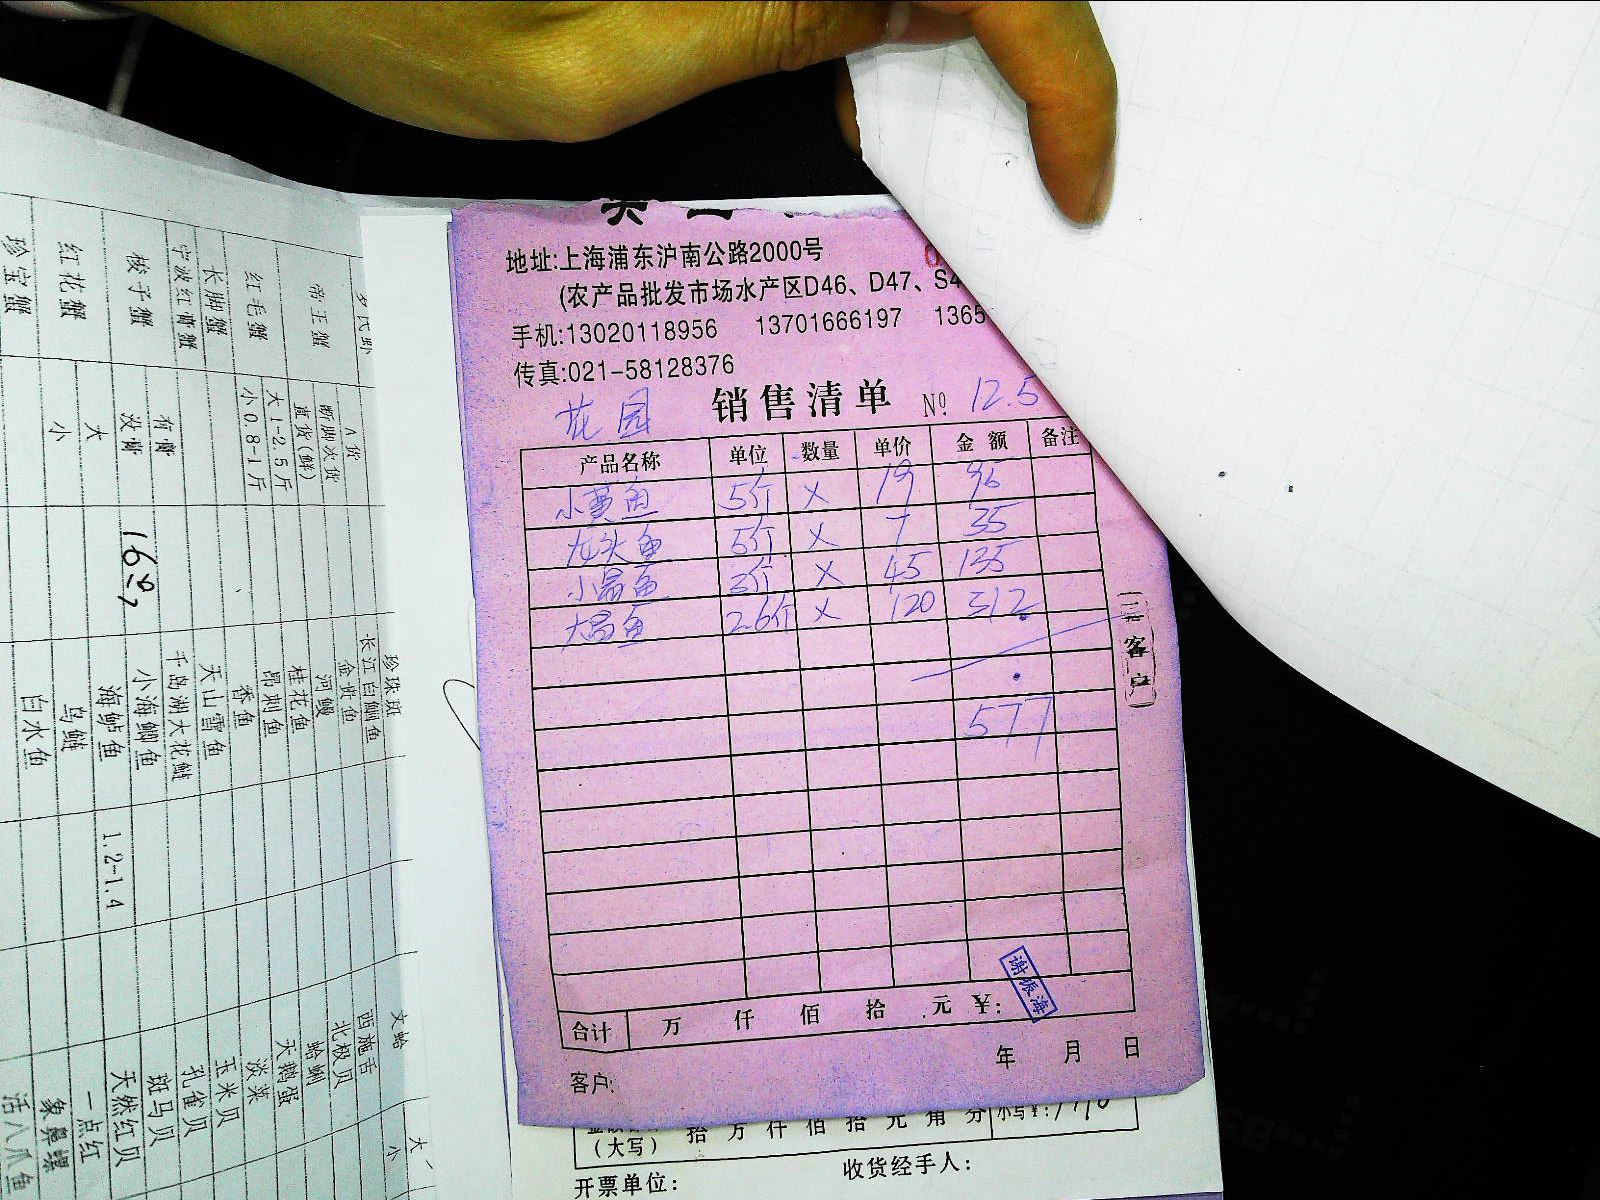 地址:上海浦东沪南公路2000号
(农产品批发市场水产区D46、D47、S4
手机:13020118956 13701666197 1365
传真:021-58128376
花园 销售清单 № 12.5
产品名称 单位 数量 单价 金额 备注
小黄鱼 5斤 × 19 96
龙头鱼 5斤 × 7 35
小昌鱼 3斤 × 45 135
大昌鱼 2.6斤 × 120 312
577
二客户
谢振海
合计 万 仟 佰 拾 元 ¥:
年 月 日
客户:
(大写) 拾 万 仟 佰 拾 元 角 分 小写¥:
开票单位: 收货经手人:
A货
帝王蟹 断脚次货
直货(鲜)
红毛蟹 大1-2.5斤
小0.8-1斤
长脚蟹
宁波红膏蟹
梭子蟹 有膏
没膏
红花蟹 大
小
珍宝蟹
珍珠斑
长江白鮰鱼
金贵鱼
河鳗
桂花鱼
昂刺鱼
香鱼
天山雪鱼
千岛湖大花鲢
小海鲫鱼
海鲈鱼 1.2-1.4
乌鲢
白水鱼
文蛤 大
小
西施舌
北极贝
蛤蜊
天鹅蛋
淡菜
玉米贝
孔雀贝
斑马贝
天然红贝
一点红
象鼻螺
活八爪鱼